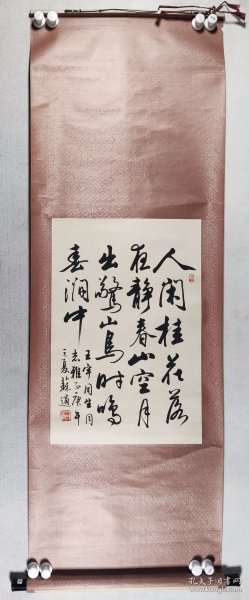 人闲桂花落
夜静春山空月
出惊山鸟时鸣
春涧中
王宁同生同
志雅正庚午
之夏苏适
孔夫子旧书网